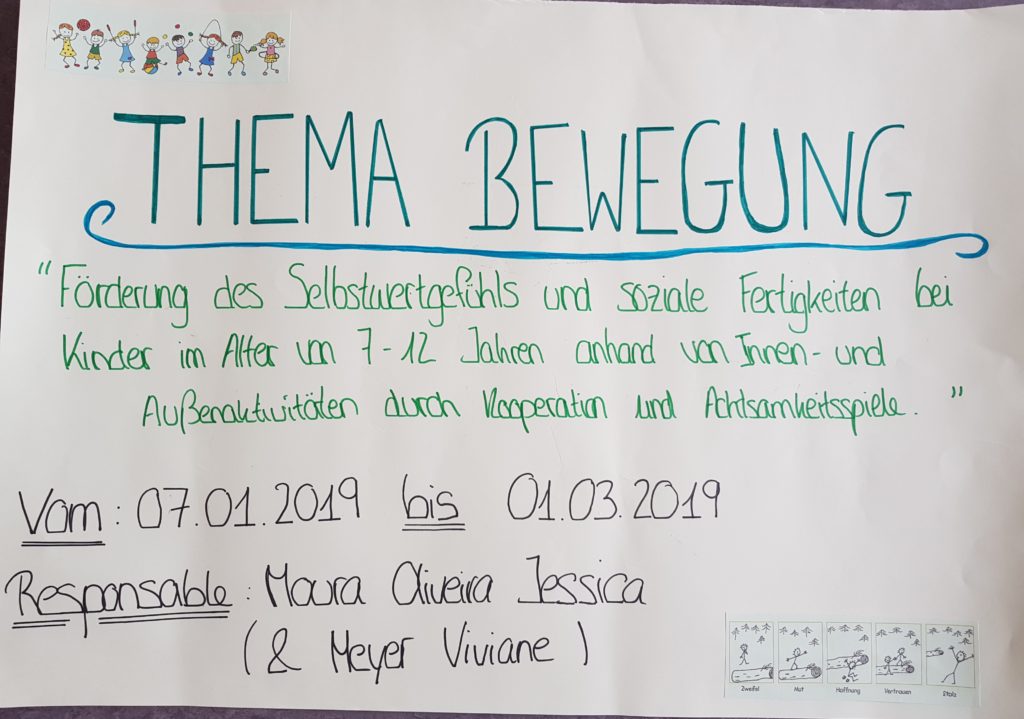 THEMA BEWEGUNG
"Förderung des Selbstwertgefühls und soziale Fertigkeiten bei
Kinder im Alter von 7-12 Jahren anhand von Innen- und
Außenaktivitäten durch Kooperation und Achtsamkeitsspiele."
Vom: 07.01.2019 bis 01.03.2019
Responsable: Moura Oliveira Jessica
(& Meyer Viviane)
Zweifel Mut Hoffnung Vertrauen Stolz